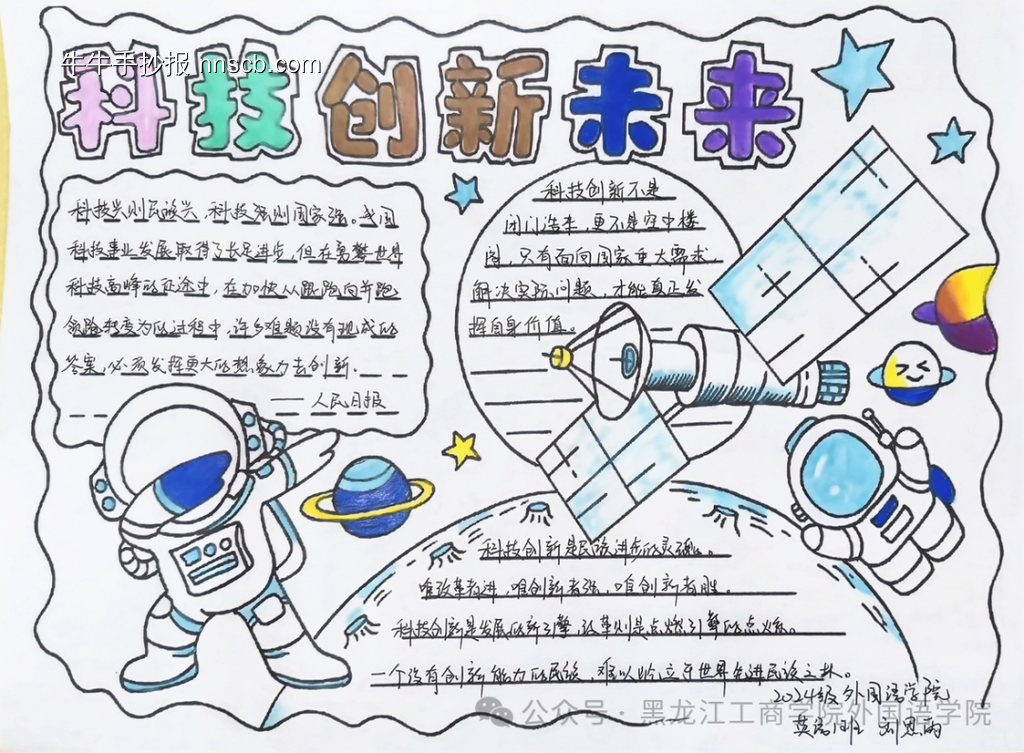 牛牛手抄报 nnscb.com
科技创新未来
科技兴则民族兴，科技强则国家强。我国
科技事业发展取得了长足进步，但在勇攀世界
科技高峰的征途中，在加快从跟跑向并跑
领跑转变为的过程中，许多难题没有现成的
答案，必须发挥更大的想象力去创新．
——人民日报
科技创新不是
闭门造车，更不是空中楼
阁，只有面向国家重大需求，
解决实际问题，才能真正发
挥自身价值。
科技创新是民族进步的灵魂。
唯改革者进，唯创新者强，唯创新者胜。
科技创新是发展的新引擎，改革则是点燃引擎的点火
一个没有创新能力的民族，难以屹立于世界先进民族之林。
2024级外国语学院
英语1班 刘思雨
公众号·黑龙江工商学院外国语学院